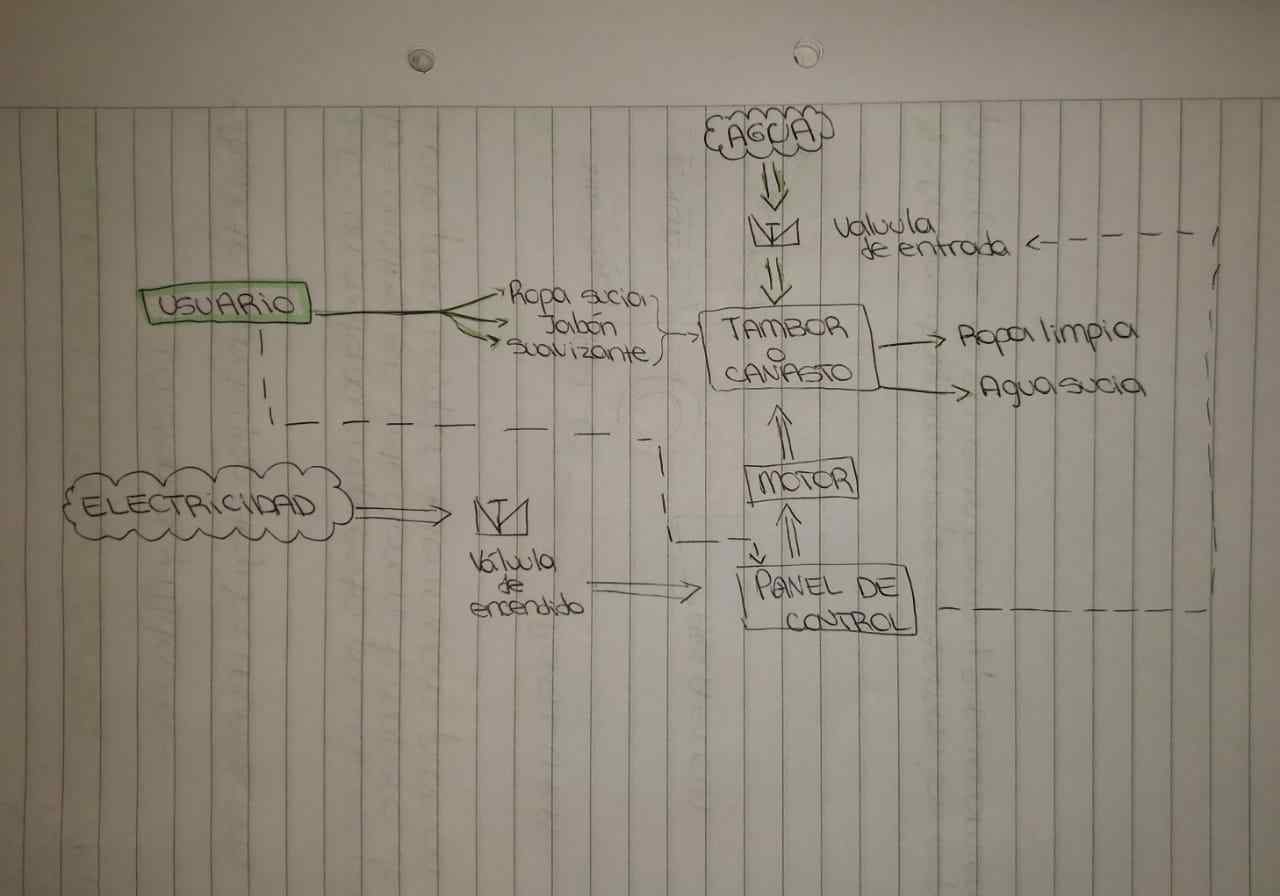 AGUA
Valvula
de entrada
USUARIO
Ropa sucia
Jabón
Suavizante
TAMBOR
O
CANASTO
Ropa limpia
Agua sucia
ELECTRICIDAD
MOTOR
Válvula
de
encendido
PANEL DE
CONTROL